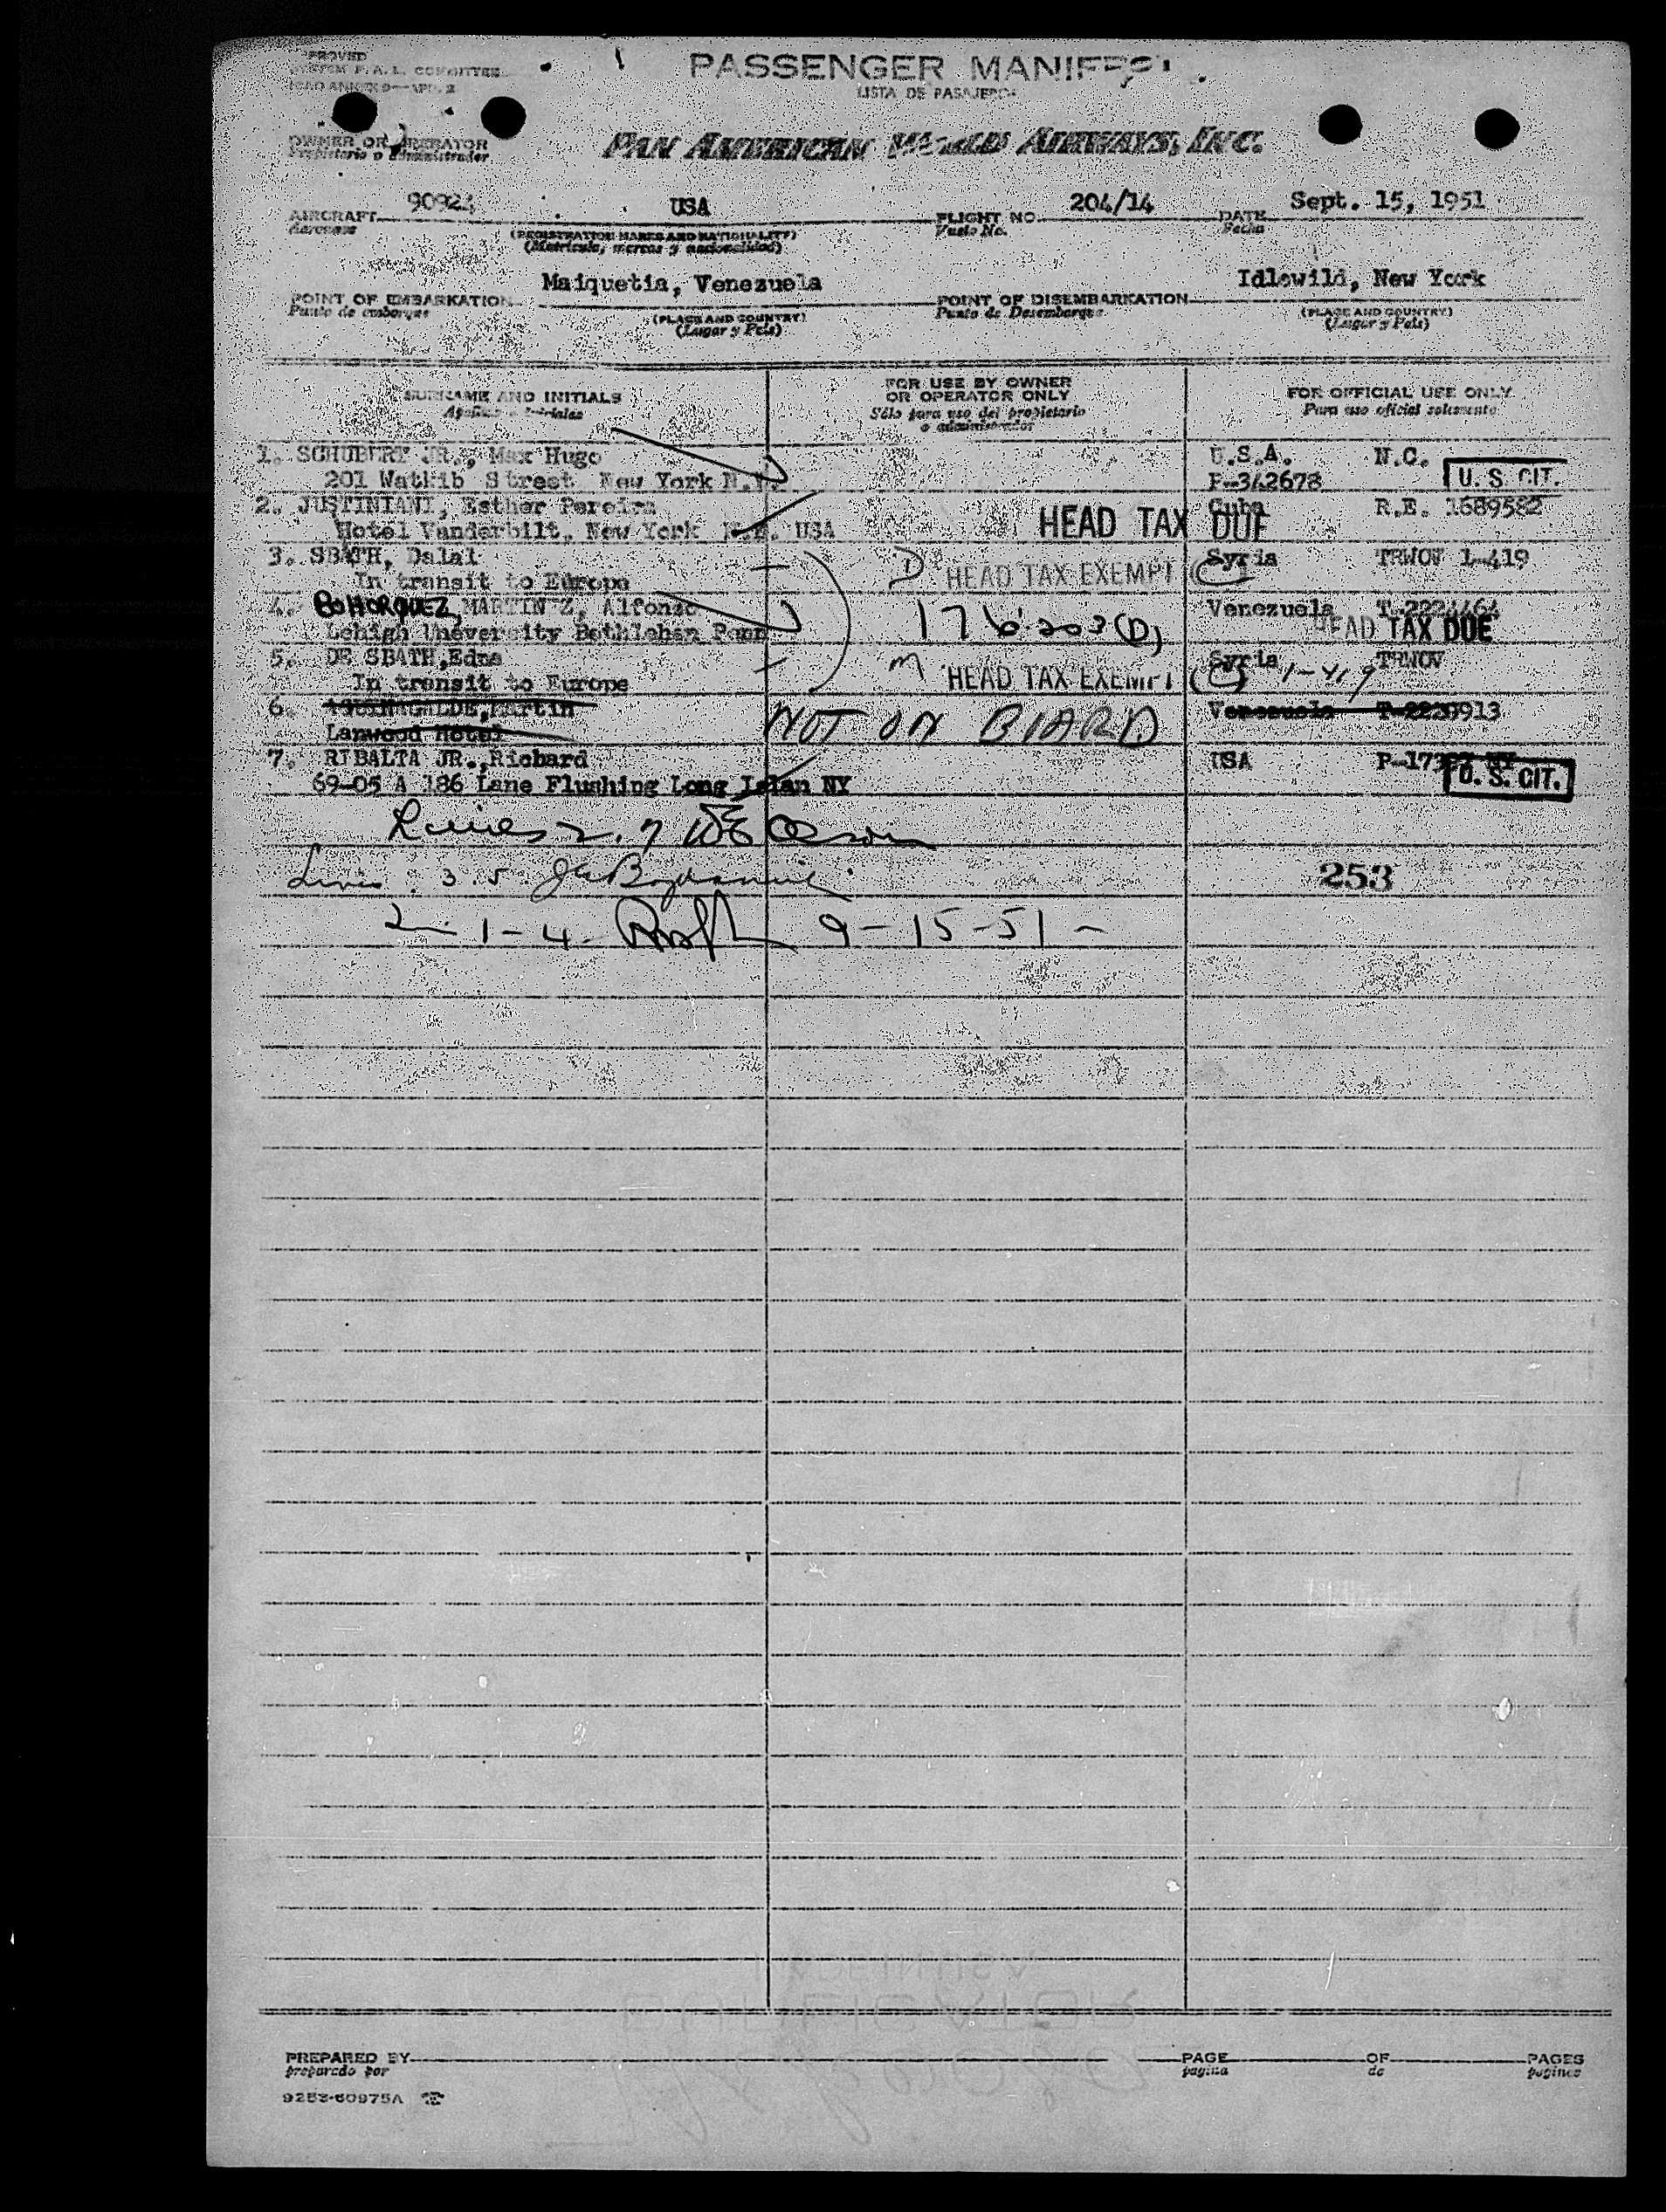 PROVED
SYSTEM F.A.L. COMMITTEE
ICAO ANNEX 9—APP. 2
PASSENGER MANIFEST
LISTA DE PASAJEROS
OWNER OR OPERATOR
Propietario o Administrador
PAN AMERICAN WORLD AIRWAYS, INC.
AIRCRAFT 90924 USA FLIGHT NO. 204/14 DATE Sept. 15, 1951
Aeronave (REGISTRATION MARKS AND NATIONALITY) Vuelo No. Fecha
(Matricula, marcas y nacionalidad)
POINT OF EMBARKATION Maiquetia, Venezuela POINT OF DISEMBARKATION Idlewild, New York
Punto de embarque (PLACE AND COUNTRY) Punto de Desembarque (PLACE AND COUNTRY)
(Lugar y Pais) (Lugar y Pais)
SURNAME AND INITIALS FOR USE BY OWNER OR OPERATOR ONLY FOR OFFICIAL USE ONLY
Apellido e Iniciales Sólo para uso del propietario o administrador Para uso oficial solamente
1. SCHUBERT JR., Max Hugo U.S.A. N.C.
201 Street New York N.Y. P-342678 U. S. CIT.
2. JUSTINIANI, Esther Pereira Cuba R.E. 1689582
Hotel Vanderbilt, New York N.Y. USA HEAD TAX DUE
3. SBATH, Dalal D Syria TRWOV L-419
In transit to Europe HEAD TAX EXEMPT
4. BOHORQUEZ, MARTIN Z, Alfonso 176203(D) Venezuela
Lehigh Uneversity Bethlehem Penn HEAD TAX DUE
5. DE SBATH, Edna M Syria TRWOV
In transit to Europe HEAD TAX EXEMPT 1-419
6. Martin NOT ON BOARD Venezuela
Lanwood Hotel
7. RIBALTA JR., Richard USA
69-05 A 186 Lane Flushing Long Islan NY U. S. CIT.
Lines 2.7
Lines: 3.5 253
1-4- 9-15-51-
PREPARED BY PAGE OF PAGES
preparado por pagina de paginas
9253-60975A